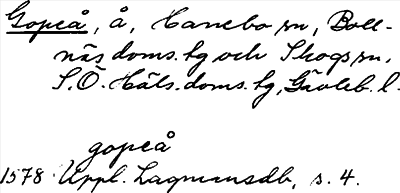 Gopeå, å, Hanebo sn, Boll-
näs doms. hg och Skogs sn,
S. Ö. Häls. doms. hg, Gävleb. l.
gopeå
1578 Uppl. Lagmansdb, s. 4.